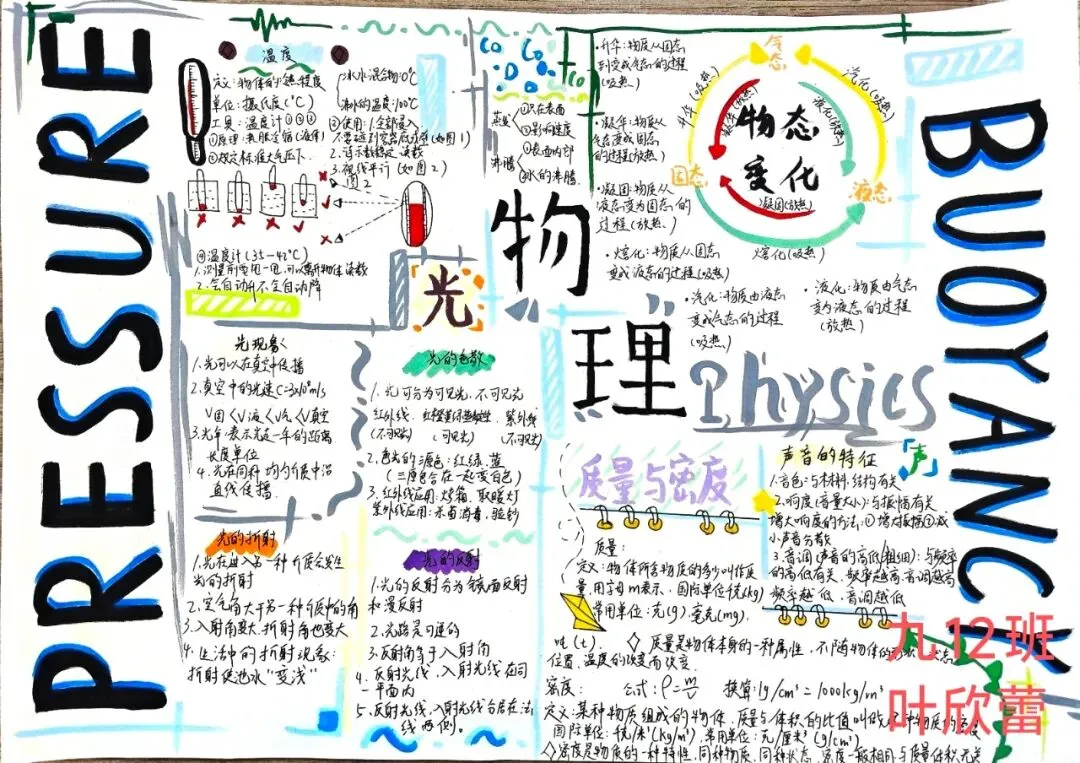 PRESSURE
温度
定义:物体的冷热程度
单位:摄氏度(℃)
工具:温度计①②③
冰水混合物:0℃
沸水的温度:100℃
2.待示数稳定 读数
3.视线平行 (如图2)
图2
④温度计(35—42℃)
2.会自动升不会自动降
蒸发
沸腾
①只在表面
水的沸腾
·升华:物质从固态
到变成气态的过程
(吸热)
·凝华:物质从
气态变成固态
的过程(放热)
·凝固:物质从
液态变为固态的
过程(放热)
·熔化:物质从固态
变成液态的过程(吸热)
·汽化:物质由液态
变成气态的过程
(吸热)
·液化:物质由气态
变为液态的过程
(放热)
气态
升华(吸热)
凝华(放热)
汽化(吸热)
液化(放热)
物态
变化
固态
液态
凝固(放热)
熔化(吸热)
BUOYANCY
物
理
Physics
光
光现象
1.光可以在真空中传播
2.真空中的光速C=3x10⁸m/s
V固<V液<V汽<V真空
3.光年:表示光走一年的距离
长度单位
4.光在同种均匀介质中沿
直线传播.
光的色散
1.光可分为可见光,不可见光
红外线 红橙黄绿蓝靛紫 紫外线
(不可见光) (可见光) (不可见光)
2.色光的三原色:红,绿,蓝
(三原色合在一起变白色)
3.红外线应用:烤箱、取暖灯
紫外线应用:杀菌消毒,验钞
光的折射
1.光在进入另一种介质会发生
光的折射
2.空气角大于另一种介质中的角
3.入射角变大,折射角也变大
4.生活中的折射现象:
折射使池水“变浅”
光的反射
1.光的反射分为镜面反射
和漫反射
2.光路是可逆的
3.反射角等于入射角
4.反射光线、入射光线在同
一平面内
5.反射光线、入射光线分居在法
线两侧。
质量与密度
质量:
定义:物体所含物质的多少叫作质
量,用字母m表示,国际单位:千克(kg)
常用单位:克(g),毫克(mg),
吨(t). ◇质量是物体本身的一种属性,不随物体的形状、状态
位置、温度的改变而改变.
密度: 公式:ρ=m/v 换算:1g/cm³=1000kg/m³
定义:某种物质组成的物体,质量与体积的比值叫做这种物质的密度
国际单位:千克/米³(kg/m³),常用单位:克/厘米³(g/cm³)
◇密度是物质的一种特性,同种物质,同种状态,密度一般相同,与质量体积无关
声音的特征
「声」
1.音色:与材料,结构有关
2.响度(音量大小):与振幅有关
增大响度的方法:①增大振幅②减
小声音分散
3.音调(声音的高低/粗细):与频率
的高低有关,频率越高,音调越高
频率越低,音调越低
九12班
叶欣蕾